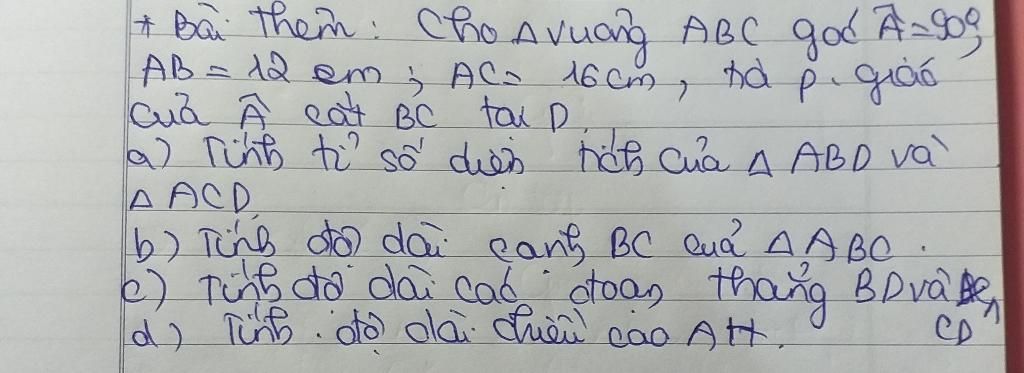 * Bài thêm: Cho Δ vuông ABC góc Â=90°,
AB = 12 cm; AC = 16cm, tia p. giác
của  cắt BC tại D.
a) Tính tỉ số diện tích của Δ ABD và
Δ ACD.
b) Tính độ dài cạnh BC của Δ ABC.
c) Tính độ dài các đoạn thẳng BD và
CD
d) Tính độ dài chiều cao AH.